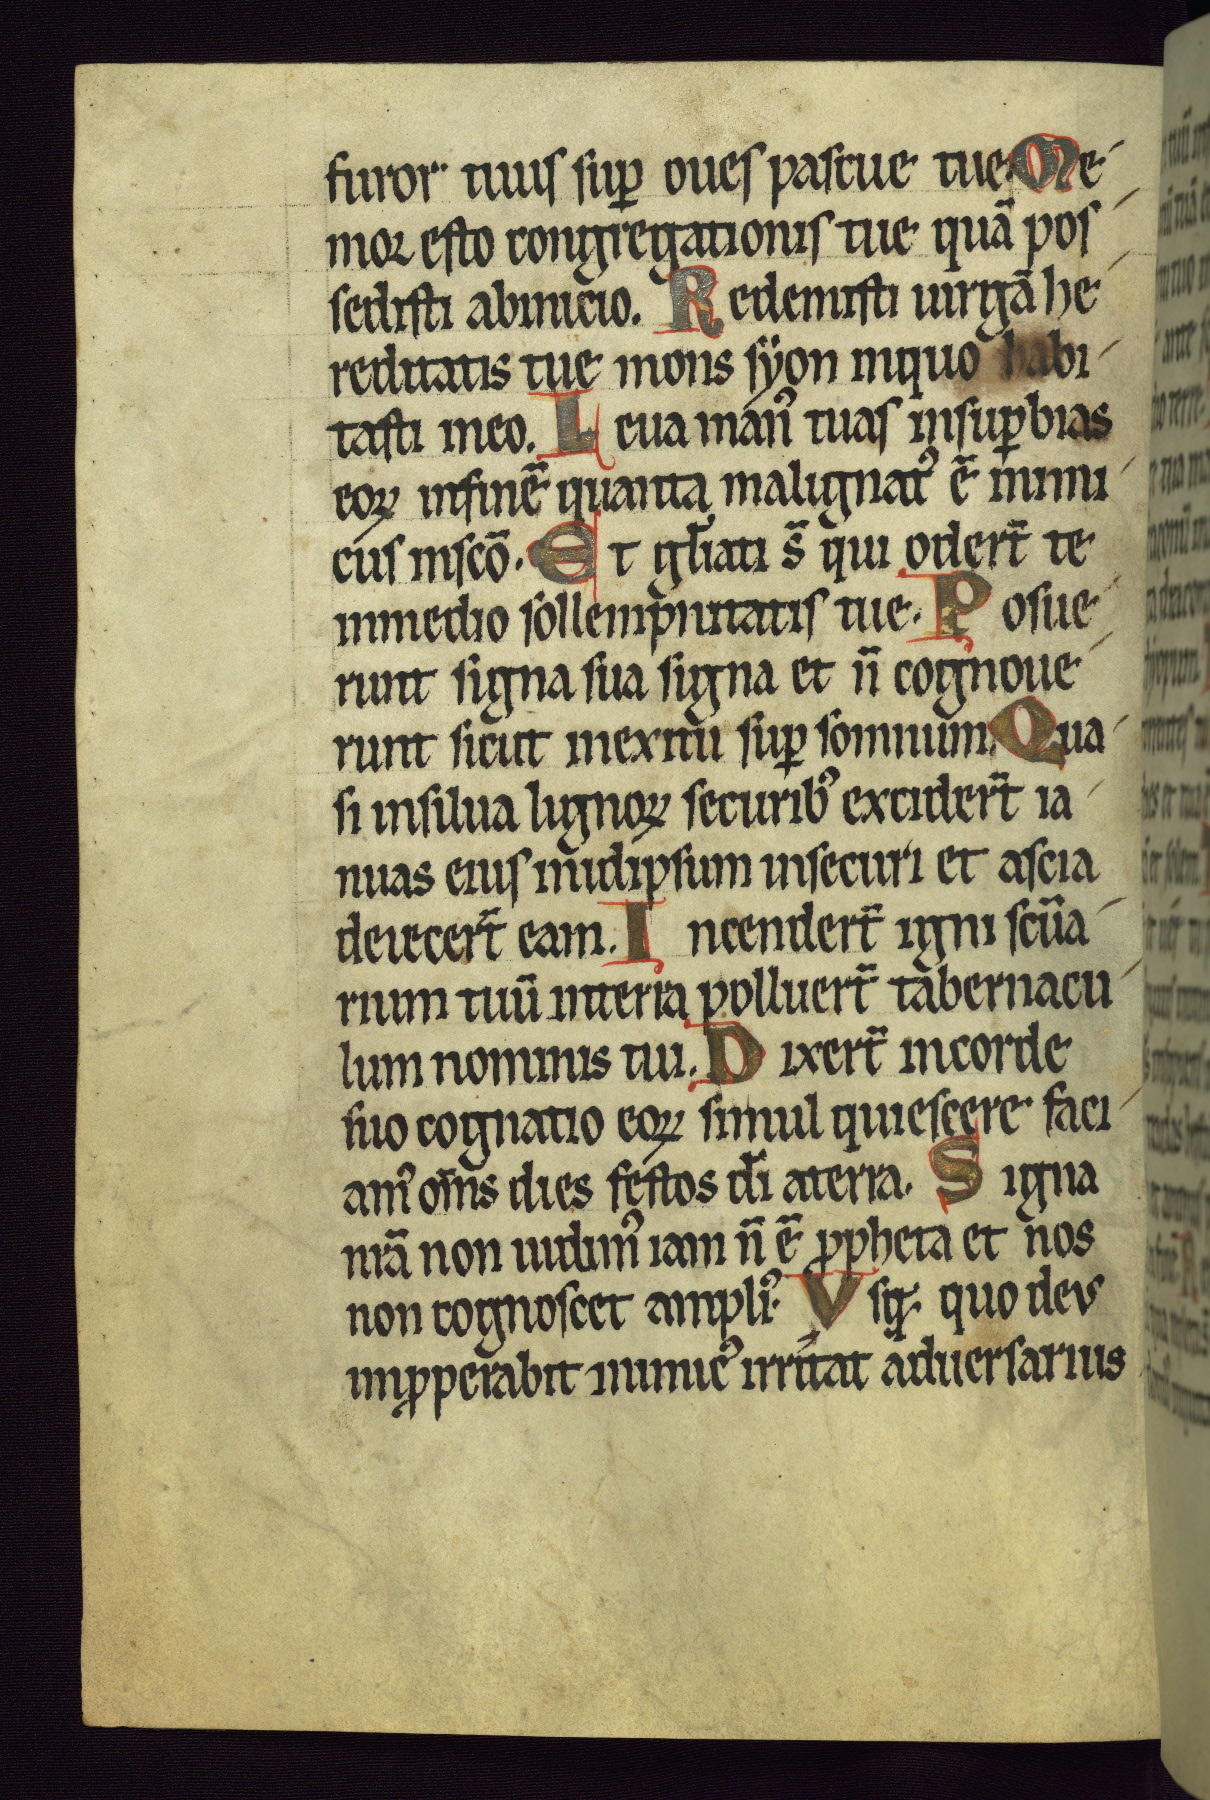 furor tuus sup̄ oues pascue tue. Me
mor esto congregationis tue quā pos
sedisti abinicio. Redemisti uirgā he
reditatis tue mons syon inquo habi
tasti ineo. Leua man᷒ tuas insup̄bias
eoꝝ infinē quanta malignat᷒ ē inimi
cus inscō. Et gl̄iati s̄ qui odert̄ te
inmedio sollempnitatis tue. Posue
runt signa sua signa et n̄ cognoue
runt sicut inexitu sup̄ somnium. Qua
si insilua lignoꝝ securib᷒ excidert̄ ia
nuas eius inidipsum insecuri et ascia
deiecert̄ eam. Incendert̄ igni scūa
rium tuū interra polluert̄ tabernacu
lum nominis tui. Dixert̄ incorde
suo cognatio eoꝝ simul quiescere faci
am᷒ om̄s dies festos dī aterra. Signa
nrā non uidim᷒ iam n̄ ē ꝓpheta et nos
non cognoscet ampli᷒. Vsq; quo deus
imꝓperabit inimic᷒ irritat aduersarius